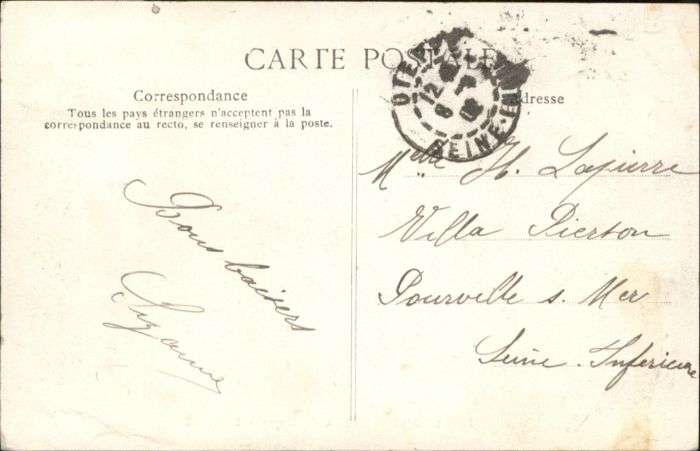 CARTE POSTALE
Correspondance
Tous les pays étrangers n'acceptent pas la
correspondance au recto, se renseigner à la poste.
Bons baisers
Suzanne
Adresse
12
6
SEINE-INF
Melle H. Lapierre
Villa Pierson
Pourville s. Mer
Seine-Inférieure